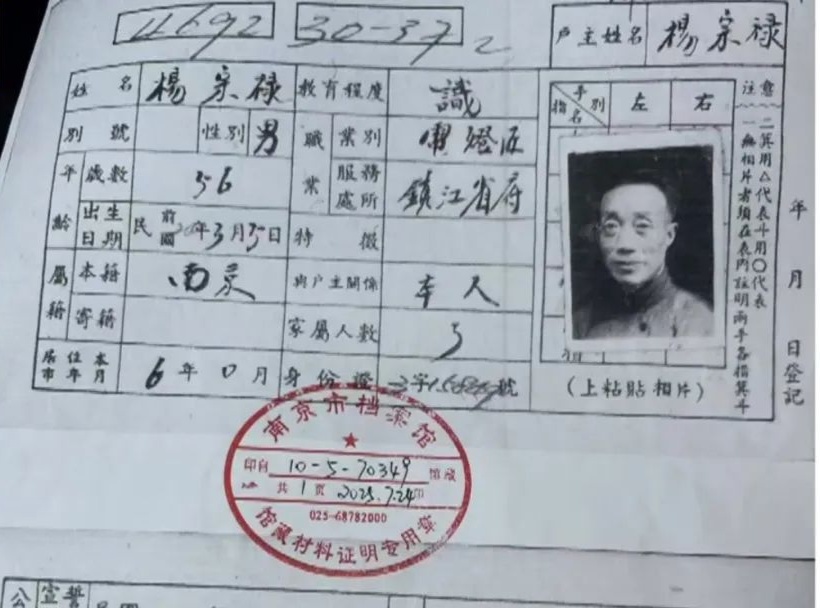 4692 30-37 2 戶主姓名 楊宗禄
姓名 楊宗禄 教育程度 識
別號 性別 男 職業 業別 燈匠
年齡 歲數 56 服務處所 鎮江省府
出生日期 民前國 年3月15日 特徵
屬籍 本籍 南京 與戶主關係 本人
寄籍 家屬人數 5
居住本市年月 6年0月 身份證 字 號
指名 手別 左 右
(上粘貼相片)
注意
一無相片者須在表內註明兩手各指箕斗
二箕用△代表斗用○代表
年 月 日登記
南京市档案馆
印自 10-5-70349 馆藏
共1页 2025.7.24印
025-68782000
馆藏材料证明专用章
公 宣誓